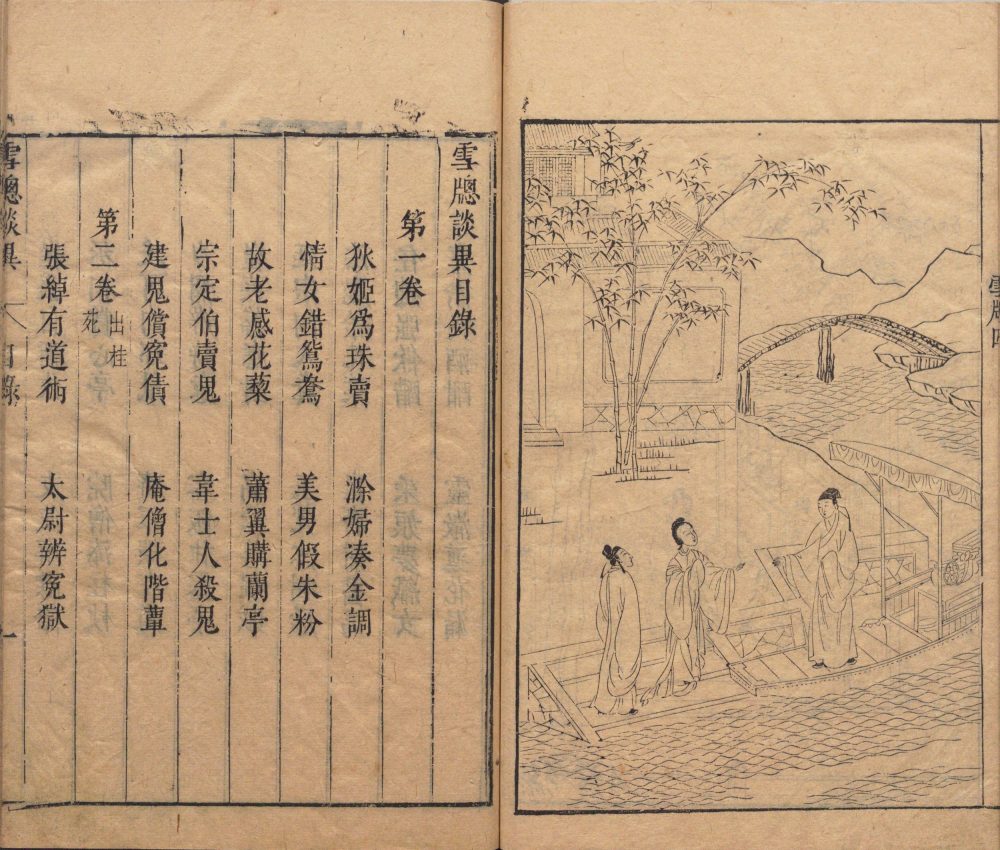 雪牕
雪牕談異目錄
第一卷
狄姬爲珠賣　滁婦湊金調
情女錯鴛鴦　美男假朱粉
故老感花藜　蕭翼購蘭亭
宗定伯賣鬼　韋士人殺鬼
建鬼償寃債　庵僧化階蕈
第二卷　出桂苑
張綽有道術　太尉辨寃獄
雪牕談異　目錄　一